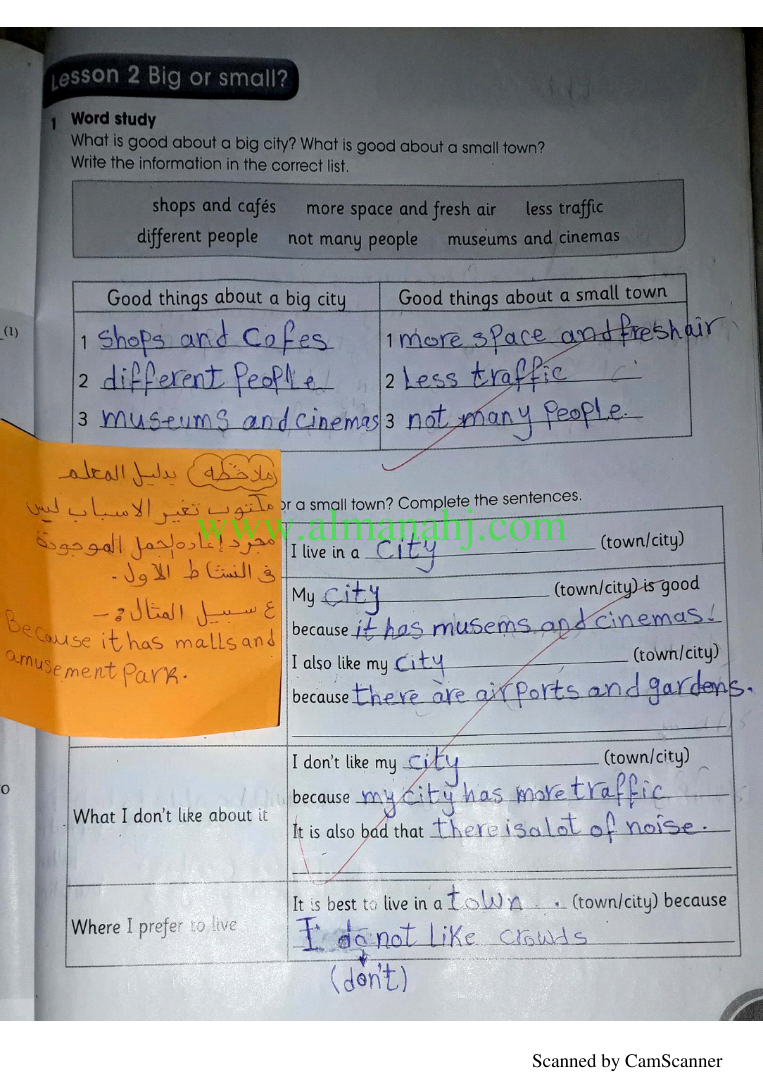 Lesson 2 Big or small?
1 Word study
What is good about a big city? What is good about a small town?
Write the information in the correct list.
shops and cafés more space and fresh air less traffic
different people not many people museums and cinemas
Good things about a big city Good things about a small town
(1)
1 shops and cafes 1 more space and fresh air
2 different people 2 Less traffic
3 museums and cinemas 3 not many people.
ملاحظه بدليل المعلم
مكتوب تغير الاسباب ليس
مجرد إعاده لجمل الموجودة
في النشاط الاول.
ع سبيل المثال :-
Because it has malls and
amusement park.
or a small town? Complete the sentences.
www.almanahj.com
I live in a city (town/city)
My city (town/city) is good
because it has musems and cinemas.
I also like my city (town/city)
because there are airports and gardens.
What I don't like about it
I don't like my city (town/city)
because my city has more traffic
It is also bad that there is a lot of noise.
Where I prefer to live
It is best to live in a town . (town/city) because
I do not like crowds
(don't)
Scanned by CamScanner